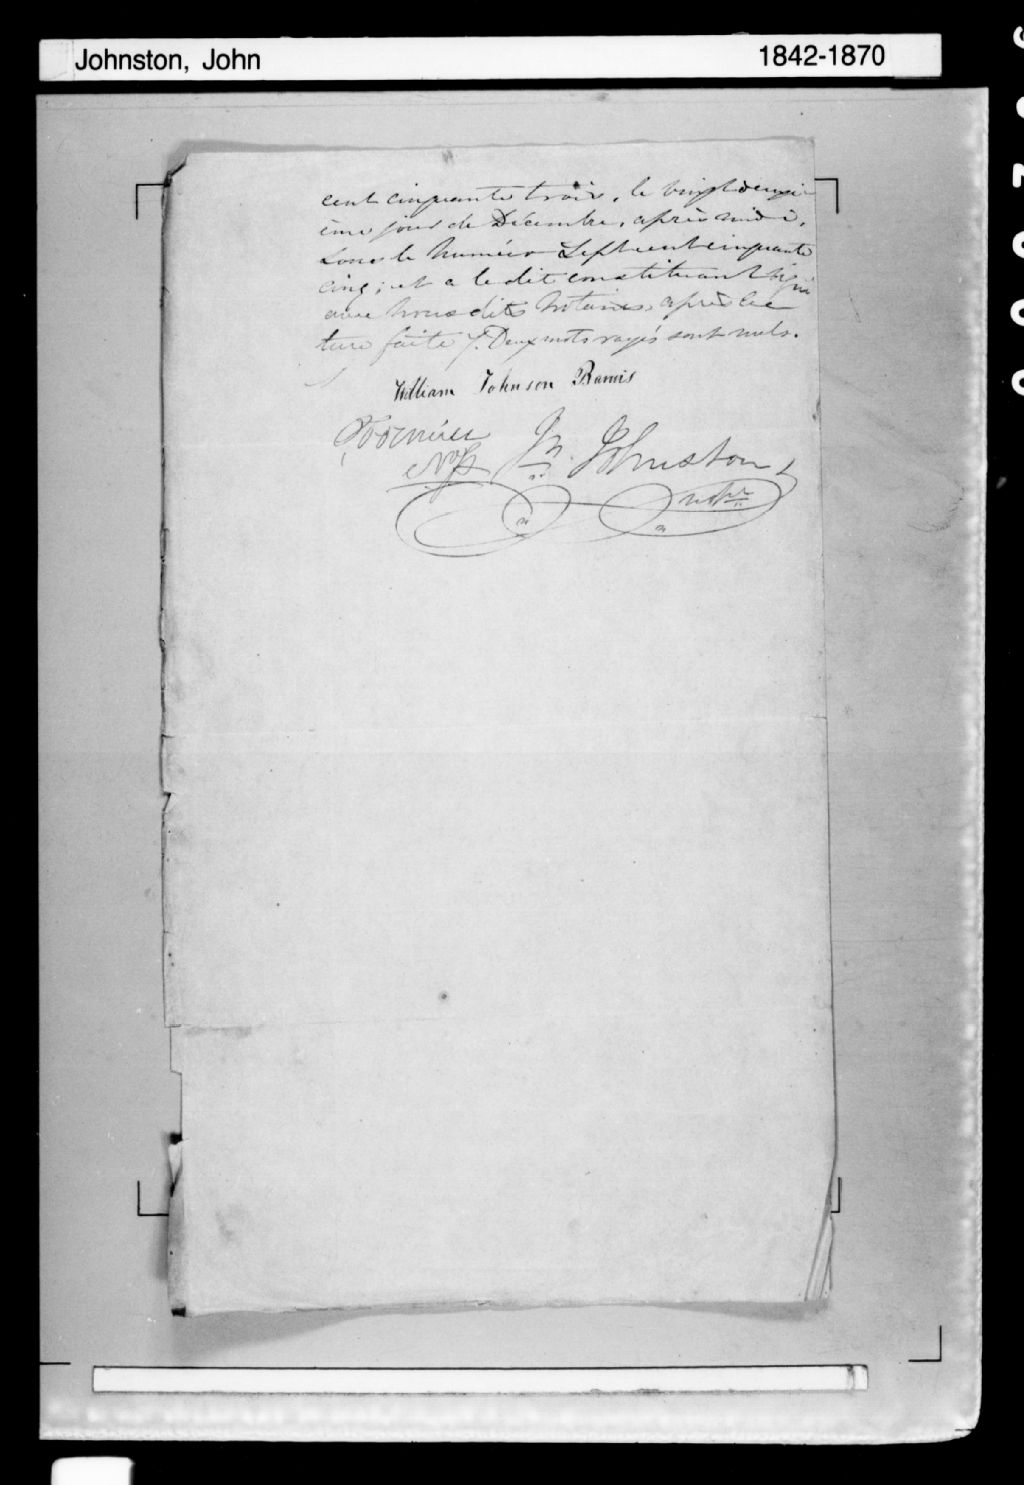 Johnston, John 1842-1870
cent cinquante trois, le vingtdeuxi
ème jour de Décembre, après midi,
Sous le Numéro Sept cent cinquante
cinq; et a le dit constituant signé
avec Nous dits Notaires, après lec
ture faite /. Deux mots rayés sont nuls.
William Johnson Bamis
NP Jn. Johnston
notre